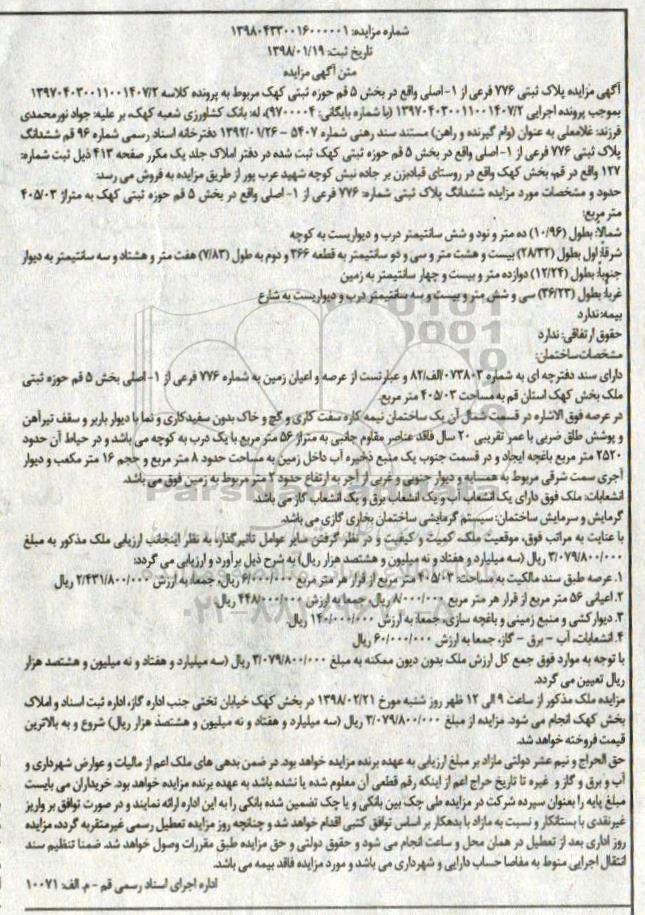 شماره مزایده: ۱۳۹۸۰۴۳۳۰۰۱۶۰۰۰۰۰۱
تاریخ ثبت: ۱۳۹۸/۰۱/۱۹
متن آگهی مزایده
آگهی مزایده پلاک ثبتی ۷۷۶ فرعی از ۱- اصلی واقع در بخش ۵ قم حوزه ثبتی کهک مربوط به پرونده کلاسه ۱۳۹۷۰۴۰۳۰۰۱۱۰۰۱۴۰۷/۲
بموجب پرونده اجرایی ۱۳۹۷۰۴۰۳۰۰۱۱۰۰۱۴۰۷/۲ (با شماره بایگانی: ۹۷۰۰۰۰۴)، له: بانک کشاورزی شعبه کهک، بر علیه: جواد نورمحمدی
فرزند: غلامعلی به عنوان (وام گیرنده و راهن) مستند سند رهنی شماره ۵۴۰۷ – ۱۳۹۲/۰۱/۲۶ دفترخانه اسناد رسمی شماره ۹۶ قم ششدانگ
پلاک ثبتی ۷۷۶ فرعی از ۱- اصلی واقع در بخش ۵ قم حوزه ثبتی کهک ثبت شده در دفتر املاک جلد یک مکرر صفحه ۴۱۳ ذیل ثبت شماره:
۱۲۷ واقع در قم، بخش کهک واقع در روستای قبادبزن بر جاده نبش کوچه شهید عرب پور از طریق مزایده به فروش می رسد:
حدود و مشخصات مورد مزایده ششدانگ پلاک ثبتی شماره: ۷۷۶ فرعی از ۱- اصلی واقع در بخش ۵ قم حوزه ثبتی کهک به متراژ ۴۰۵/۰۳
متر مربع:
شمالا: بطول (۱۰/۹۶) ده متر و نود و شش سانتیمتر درب و دیواریست به کوچه
شرقا: اول بطول (۲۸/۳۲) بیست و هشت متر و سی و دو سانتیمتر به قطعه ۳۶۶ و دوم به طول (۷/۸۳) هفت متر و هشتاد و سه سانتیمتر به دیوار
جنوبا: بطول (۱۲/۲۴) دوازده متر و بیست و چهار سانتیمتر به زمین
غربا: بطول (۳۶/۲۳) سی و شش متر و بیست و سه سانتیمتر درب و دیواریست به شارع
بیمه: ندارد
حقوق ارتفاقی: ندارد
مشخصات ساختمان:
دارای سند دفترچه ای به شماره ۰۷۳۸۰۳/الف/۸۲ و عبارتست از عرصه و اعیان زمین به شماره ۷۷۶ فرعی از ۱- اصلی بخش ۵ قم حوزه ثبتی
ملک بخش کهک استان قم به مساحت ۴۰۵/۰۳ متر مربع.
در عرصه فوق الاشاره در قسمت شمال آن یک ساختمان نیمه کاره سفت کاری و گچ و خاک بدون سفیدکاری و نما با دیوار باربر و سقف تیرآهن
و پوشش طاق ضربی با عمر تقریبی ۲۰ سال فاقد عناصر مقاوم جانبی به متراژ ۵۶ متر مربع با یک درب به کوچه می باشد و در حیاط آن حدود
۲۵۲۰ متر مربع باغچه ایجاد و در قسمت جنوب یک منبع ذخیره آب داخل زمین به مساحت حدود ۸ متر مربع و حجم ۱۶ متر مکعب و دیوار
آجری سمت شرقی مربوط به همسایه و دیوار جنوبی و غربی از آجر به ارتفاع حدود ۲ متر مربوط به زمین فوق می باشد.
انشعابات: ملک فوق دارای یک انشعاب آب و یک انشعاب برق و یک انشعاب گاز می باشد.
گرمایش و سرمایش ساختمان: سیستم گرمایشی ساختمان بخاری گازی می باشد.
با عنایت به مراتب فوق، موقعیت ملک، کمیت و کیفیت و در نظر گرفتن سایر عوامل تاثیرگذار، به نظر اینجانب ارزیابی ملک مذکور به مبلغ
۳/۰۷۹/۸۰۰/۰۰۰ ریال (سه میلیارد و هفتاد و نه میلیون و هشتصد هزار ریال) به شرح ذیل برآورد و ارزیابی می گردد:
۱. عرصه طبق سند مالکیت به مساحت: ۴۰۵/۰۳ متر مربع از قرار هر متر مربع ۶/۰۰۰/۰۰۰ ریال، جمعا به ارزش ۲/۴۳۱/۸۰۰/۰۰۰ ریال
۲. اعیانی ۵۶ متر مربع از قرار هر متر مربع ۸/۰۰۰/۰۰۰ ریال، جمعا به ارزش ۴۴۸/۰۰۰/۰۰۰ ریال
۳. دیوارکشی و منبع زمینی و باغچه سازی، جمعا به ارزش ۱۴۰/۰۰۰/۰۰۰ ریال.
۴. انشعابات، آب – برق – گاز، جمعا به ارزش ۶۰/۰۰۰/۰۰۰ ریال
با توجه به موارد فوق جمع کل ارزش ملک بدون دیون ممکنه به مبلغ ۳/۰۷۹/۸۰۰/۰۰۰ ریال (سه میلیارد و هفتاد و نه میلیون و هشتصد هزار
ریال تعیین می گردد.
مزایده ملک مذکور از ساعت ۹ الی ۱۲ ظهر روز شنبه مورخ ۱۳۹۸/۰۲/۲۱ در بخش کهک خیابان تختی جنب اداره گاز، اداره ثبت اسناد و املاک
بخش کهک انجام می شود. مزایده از مبلغ ۳/۰۷۹/۸۰۰/۰۰۰ ریال (سه میلیارد و هفتاد و نه میلیون و هشتصد هزار ریال) شروع و به بالاترین
قیمت فروخته خواهد شد.
حق الحراج و نیم عشر دولتی مازاد بر مبلغ ارزیابی به عهده برنده مزایده خواهد بود. در ضمن بدهی های ملک اعم از مالیات و عوارض شهرداری و
آب و برق و گاز و غیره تا تاریخ حراج اعم از اینکه رقم قطعی آن معلوم شده یا نشده باشد به عهده برنده مزایده خواهد بود. خریداران می بایست
مبلغ پایه را بعنوان سپرده شرکت در مزایده طی چک بین بانکی و یا چک تضمین شده بانکی را به این اداره ارائه نمایند و در صورت توافق بر واریز
غیرنقدی با بستانکار و نسبت به مازاد با بدهکار بر اساس توافق کتبی اقدام خواهد شد و چنانچه روز مزایده تعطیل رسمی غیرمترقبه گردد، مزایده
روز اداری بعد از تعطیل در همان محل و ساعت انجام می شود و حقوق دولتی و حق مزایده طبق مقررات وصول خواهد شد. ضمنا تنظیم سند
انتقال اجرایی منوط به مفاصا حساب دارایی و شهرداری می باشد و مورد مزایده فاقد بیمه می باشد.
اداره اجرای اسناد رسمی قم - م. الف: ۱۰۰۷۱